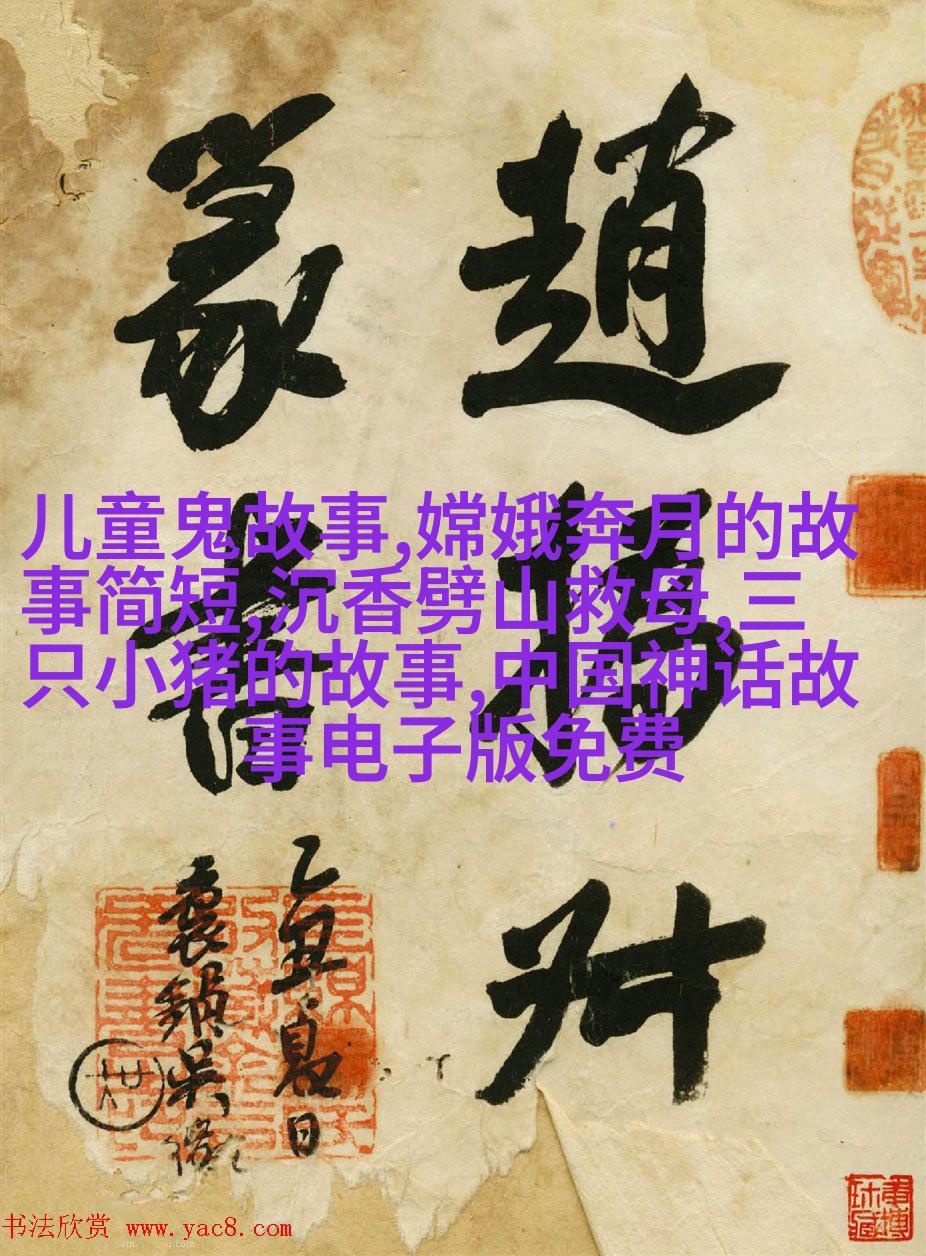 趙撝叔
篆書
乙亥夏日
儿童鬼故事,嫦娥奔月的故
事简短,沉香劈山救母,三
只小猪的故事,中国神话故
事电子版免费
书法欣赏 www.yac8.com